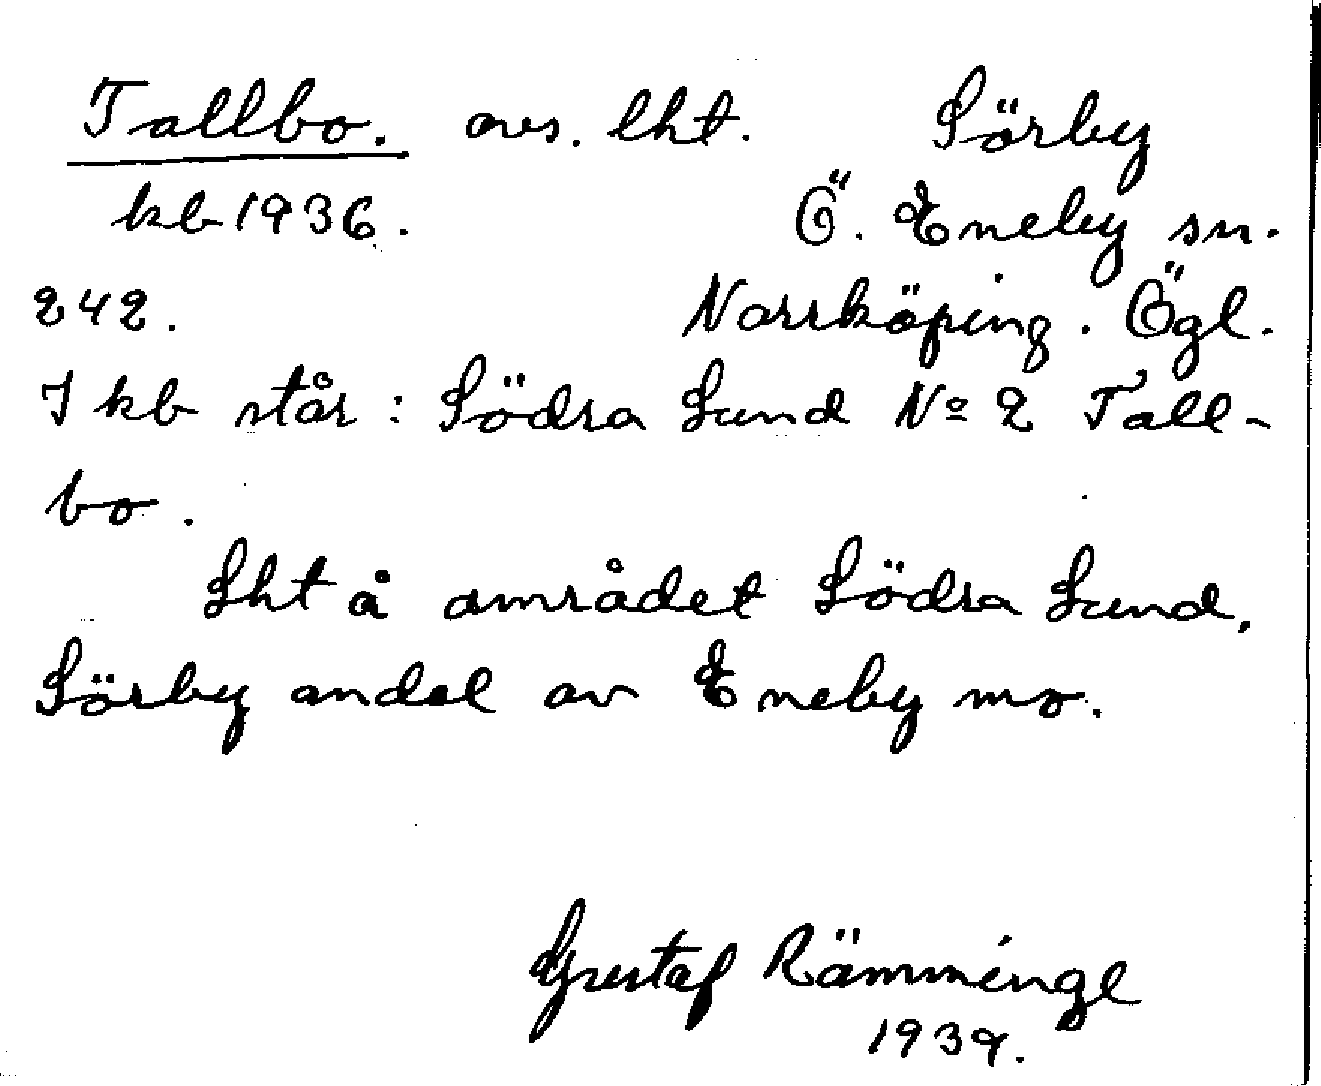 Tallbo. avs. lht. Sörby
kb 1936. Ö. Eneby sn.
242. Norrköping. Ögl.
I kb står: Södra Sund No 2 Tall-
bo.
Lht å området Södra Sund,
Sörby andel av Eneby mo.
Gustaf Rämminge
1937.